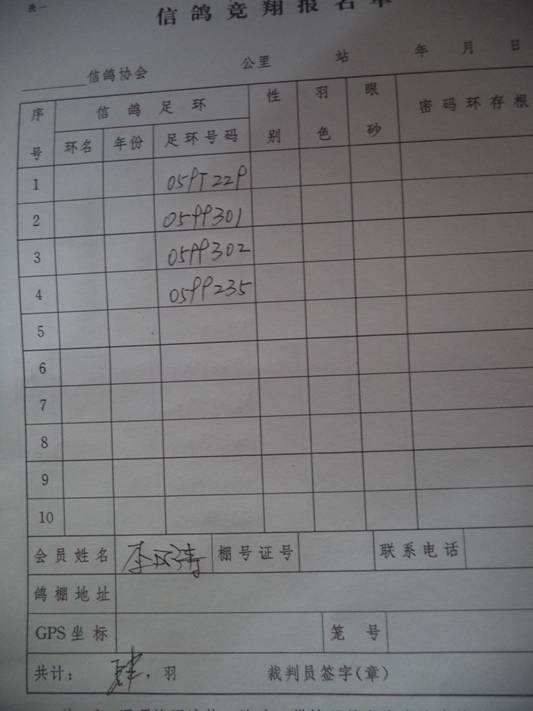 表一
信鸽竞翔报名单
信鸽协会 公里 站 年 月 日
序号 信鸽足环 性别 羽色 眼砂 密码环存根
环名 年份 足环号码
1
2 0599301
3 0599302
4 0599235
5
6
7
8
9
10
会员姓名 棚号证号 联系电话
鸽棚地址
GPS坐标 笼号
共计： 肆 羽 裁判员签字(章)